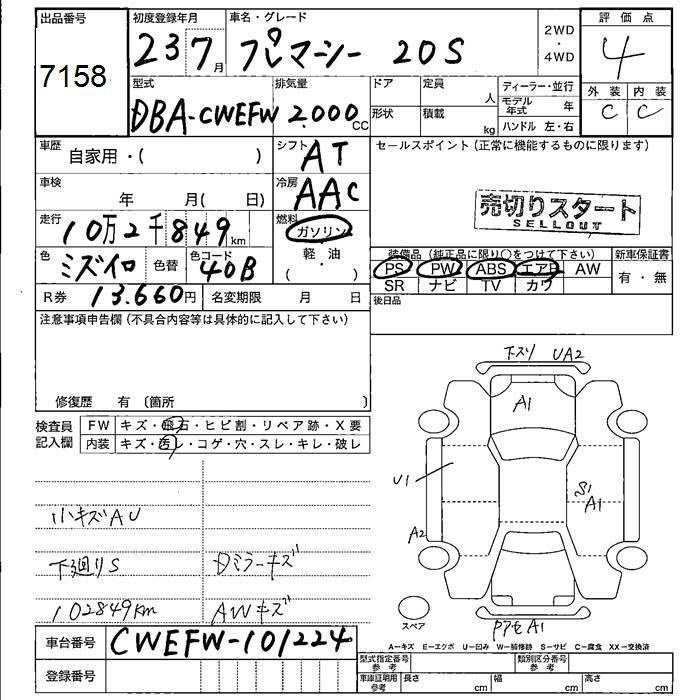 出品番号 初度登録年月 車名・グレード 2WD・4WD 評価点
7158 23 7月 プレマーシー 20S 4
型式 排気量 ドア 定員 人 ディーラー・並行 外装 内装
DBA-CWEFW 2.000CC 形状 積載 kg モデル年式 年 C C
ハンドル 左・右
車歴 自家用・( ) シフト AT セールスポイント (正常に機能するものに限ります)
車検 年 月( 日) 冷房 AAC
売切りスタート
SELLOUT
走行 10万2千849km 燃料 ガソリン
軽・油
( ・ )
色 ミズイロ 色替 色コード 40B
装備品 (純正品に限り○をつけて下さい) 新車保証書
PS PW ABS エアB AW 有・無
SR ナビ TV カワ
R券 13.660円 名変期限 月 日 後日品
注意事項申告欄 (不具合内容等は具体的に記入して下さい)
修復歴 有 〔箇所 〕
検査員記入欄 FW キズ・飛石・ヒビ割・リペア跡・X要
内装 キズ・汚レ・コゲ・穴・スレ・キレ・破レ
小キズAU
下廻りS Dミラーキズ
102849km AWキズ
下スリ UA2
A1
U1
S1
A1
A2
スペア
PアセA1
A=キズ E=エクボ U=凹み W=補修跡 S=サビ C=腐食 XX=交換済
車台番号 CWEFW-101224
登録番号
型式指定番号 参考 類別区分番号 参考
車庫証明用 参考 長さ cm 幅 cm 高さ cm